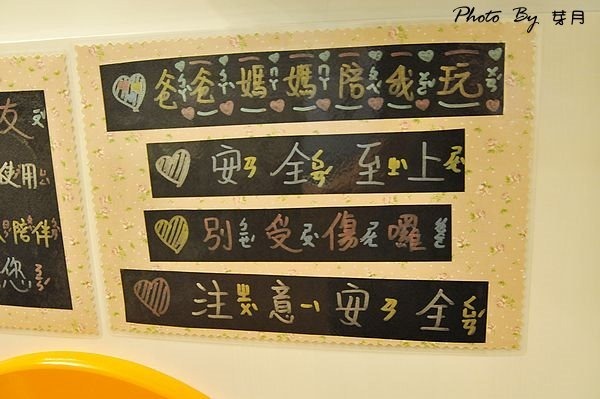 Photo By 芽月
友
使用
陪伴
您
爸爸媽媽陪我玩
安全至上
別受傷囉
注意安全